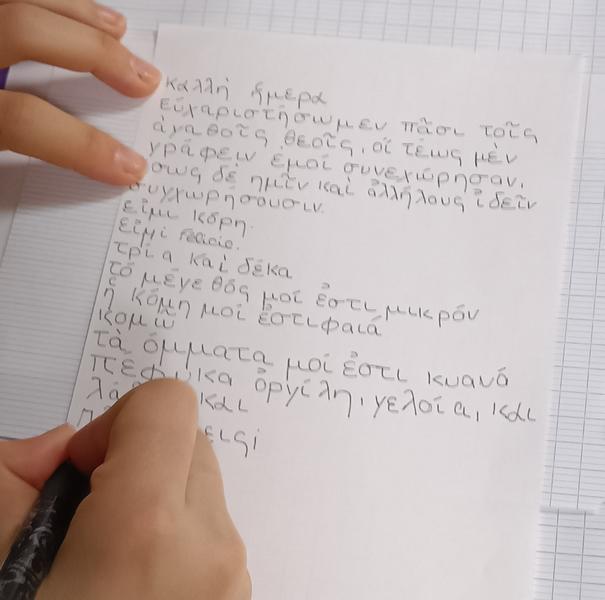 καλλὴ ἡμερα
εὐχαριστήσωμεν πᾶσι τοῖς
ἀγαθοῖς θεοῖς, οἱ τέως μὲν
γράφειν ἐμοί συνεχώρησαν,
σως δὲ ημῖν καί ἀλλήλους ἰδεῖν
συγχωρήσουσιν.
εἰμι κόρη.
εἰμί Félicie.
τρία καὶ δέκα
τό μέγεθός μοί ἐστι μικρόν
ἡ κόμη μοί ἐστι φαιά
κομῶ
τὰ ὄμματα μοί ἐστι κυανά
πεφυκα ὀργίλη, γελοία, και
και